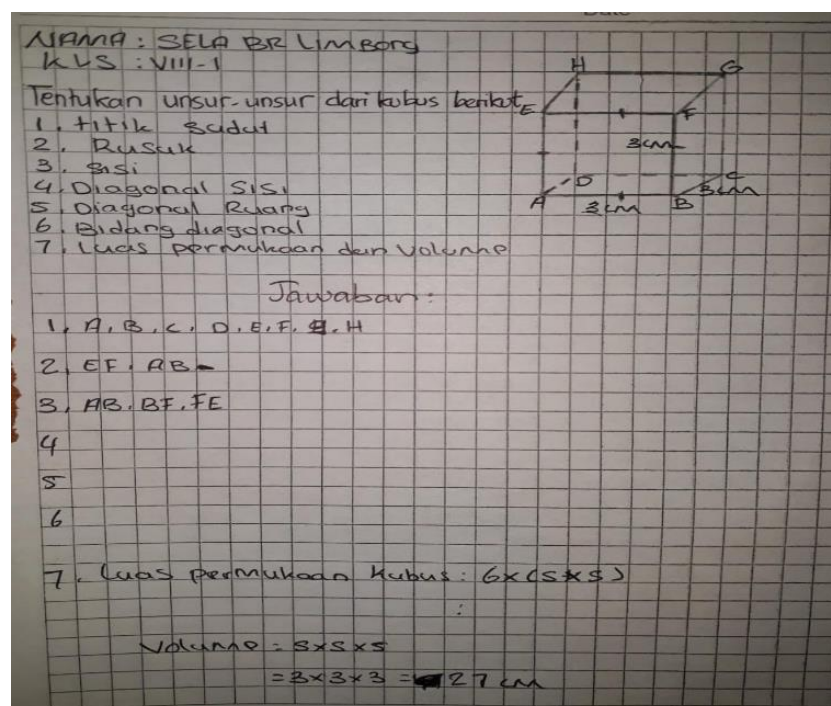 NAMA : SELA BR LIMBONG
KLS : VIII-1
Tentukan unsur-unsur dari kubus berikut
1. titik sudut
2. Rusuk
3. sisi
4. Diagonal sisi
5. Diagonal Ruang
6. Bidang diagonal
7. Luas permukaan dan volume
H G
E F
3 cm
D C
A B
3 cm
3 cm
Jawaban :
1. A. B. C. D. E. F. G. H
2. EF. AB
3. AB. BF. FE
4
5
6
7. Luas permukaan kubus : 6x(sxs)
:
Volume = sxsxs
= 3x3x3 = 27 cm